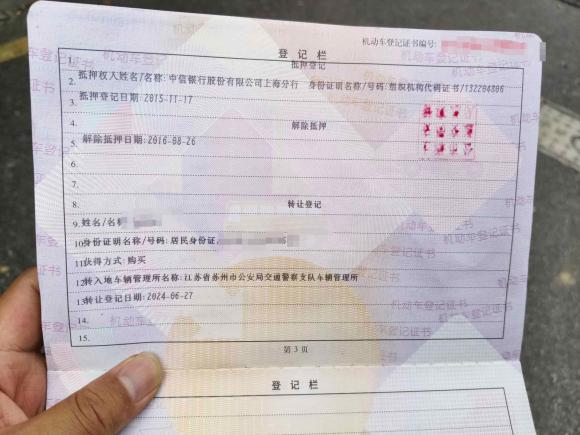 机动车登记证书编号:
登记栏
1. 抵押登记
2. 抵押权人姓名/名称:中信银行股份有限公司上海分行 身份证明名称/号码:组织机构代码证书/132204806
3. 抵押登记日期:2015-11-17
4. 解除抵押
5. 解除抵押日期:2016-08-26
6.
7.
8. 转让登记
9. 姓名/名称
10. 身份证明名称/号码:居民身份证
11. 获得方式:购买
12. 转入地车辆管理所名称:江苏省苏州市公安局交通警察支队车辆管理所
13. 转让登记日期:2024-06-27
14.
15.
第 3 页
登记栏